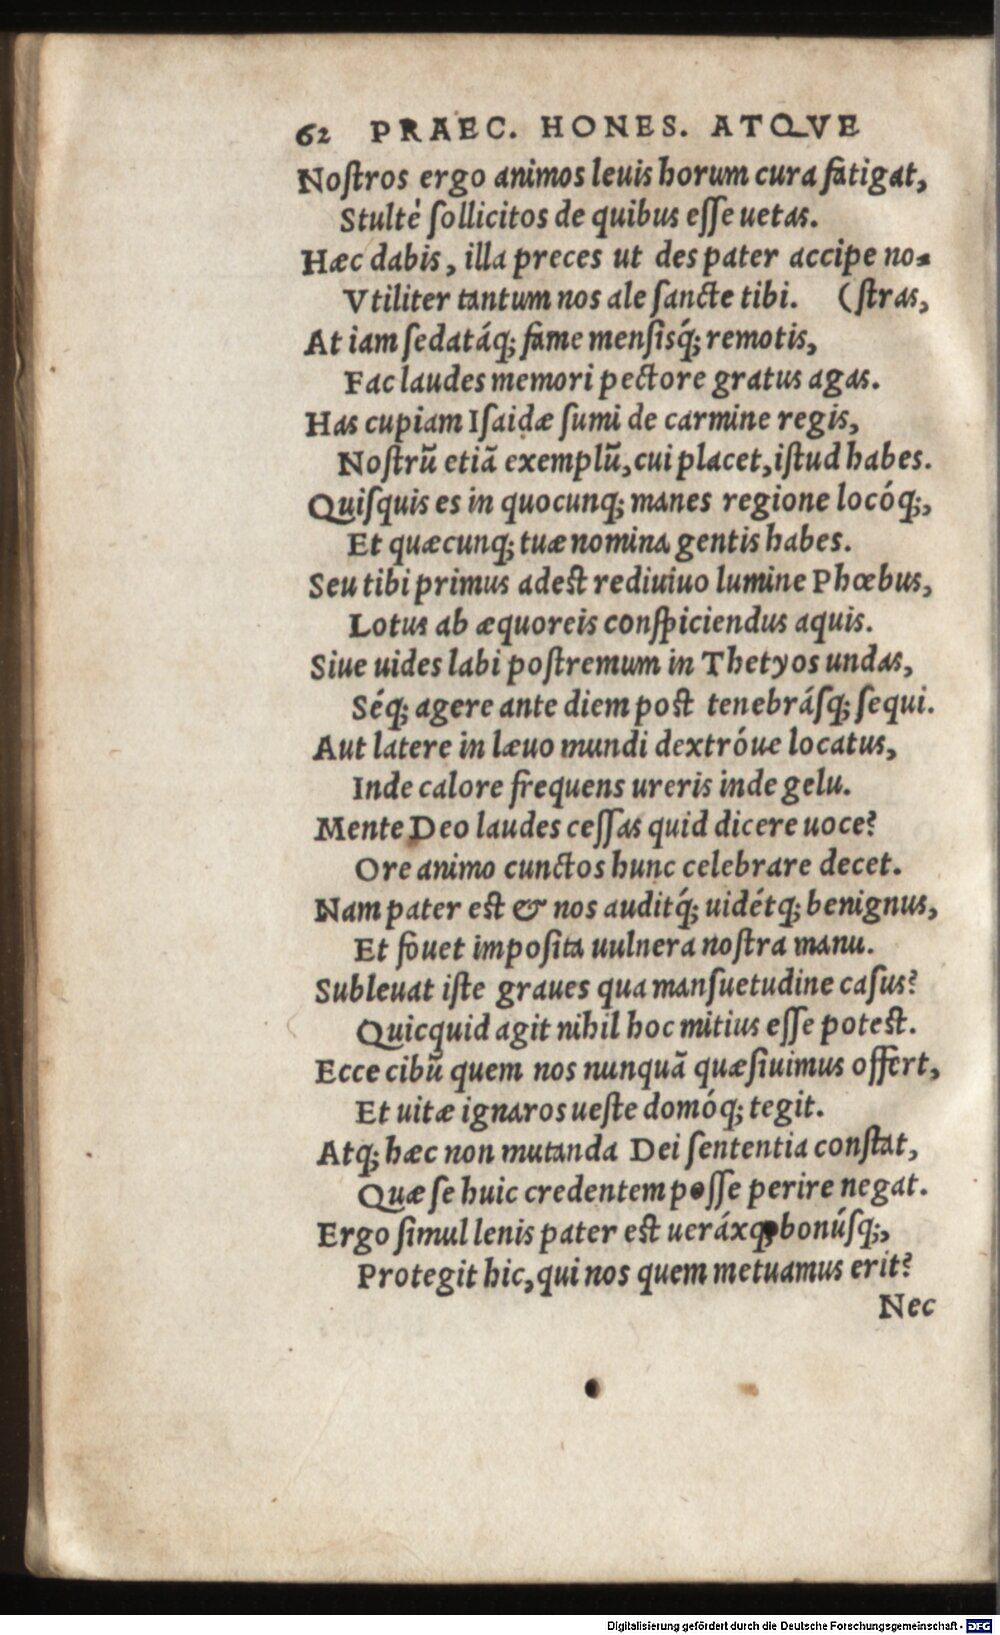 62 PRAEC. HONES. ATQVE
Noſtros ergo animos leuis horum cura fatigat,
Stultè ſollicitos de quibus eſſe uetas.
Hæc dabis, illa preces ut des pater accipe no-
Vtiliter tantum nos ale ſancte tibi. (ſtras,
At iam ſedatáq; fame menſisq́; remotis,
Fac laudes memori pectore gratus agas.
Has cupiam Iſaidæ ſumi de carmine regis,
Noſtrũ etiã exemplũ, cui placet, iſtud habes.
Quiſquis es in quocunq; manes regione locóq;,
Et quæcunq; tuæ nomina gentis habes.
Seu tibi primus adest rediuiuo lumine Phœbus,
Lotus ab æquoreis conſpiciendus aquis.
Siue uides labi poſtremum in Thetyos undas,
Séq; agere ante diem post tenebráſq; ſequi.
Aut latere in læuo mundi dextróue locatus,
Inde calore frequens ureris inde gelu.
Mente Deo laudes ceſſas quid dicere uoce?
Ore animo cunctos hunc celebrare decet.
Nam pater est & nos auditq́; uidétq; benignus,
Et fouet impoſita uulnera noſtra manu.
Subleuat iſte graues qua manſuetudine caſus?
Quicquid agit nihil hoc mitius eſſe potest.
Ecce cibũ quem nos nunquã quæſiuimus offert,
Et uitæ ignaros ueſte domóq; tegit.
Atq; hæc non mutanda Dei ſententia conſtat,
Quæ ſe huic credentem poſſe perire negat.
Ergo ſimul lenis pater est ueráxq; bonúſq;,
Protegit hic, qui nos quem metuamus erit?
Nec
Digitalisierung gefördert durch die Deutsche Forschungsgemeinschaft - DFG